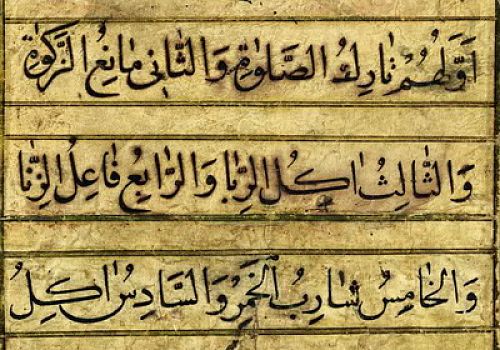 اَوَّلُهُمْ تَارِكُ الصَّلٰوةِ وَالثَّانِى مَانِعُ الزَّكٰوةِ
وَالثَّالِثُ اٰكُلُ الرِّبَا وَالرَّابِعُ فَاعِلُ الزِّنَا
وَالْخَامِسُ شَارِبُ الْخَمْرِ وَالسَّادِسُ اٰكِلُ